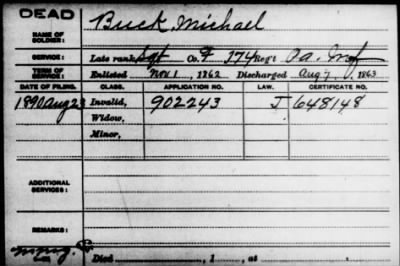 DEAD
Buck, Michael
NAME OF SOLDIER:
SERVICE: Late rank, Sgt Co. F 174 Regt Pa. Inf
TERM OF SERVICE: Enlisted Nov 1, 1862 Discharged Aug 7, 1863
DATE OF FILING. CLASS. APPLICATION NO. LAW. CERTIFICATE NO.
1890 Aug 23 Invalid, 902243 J 648148
Widow,
Minor,
ADDITIONAL SERVICES:
REMARKS:
Died , 1 , at